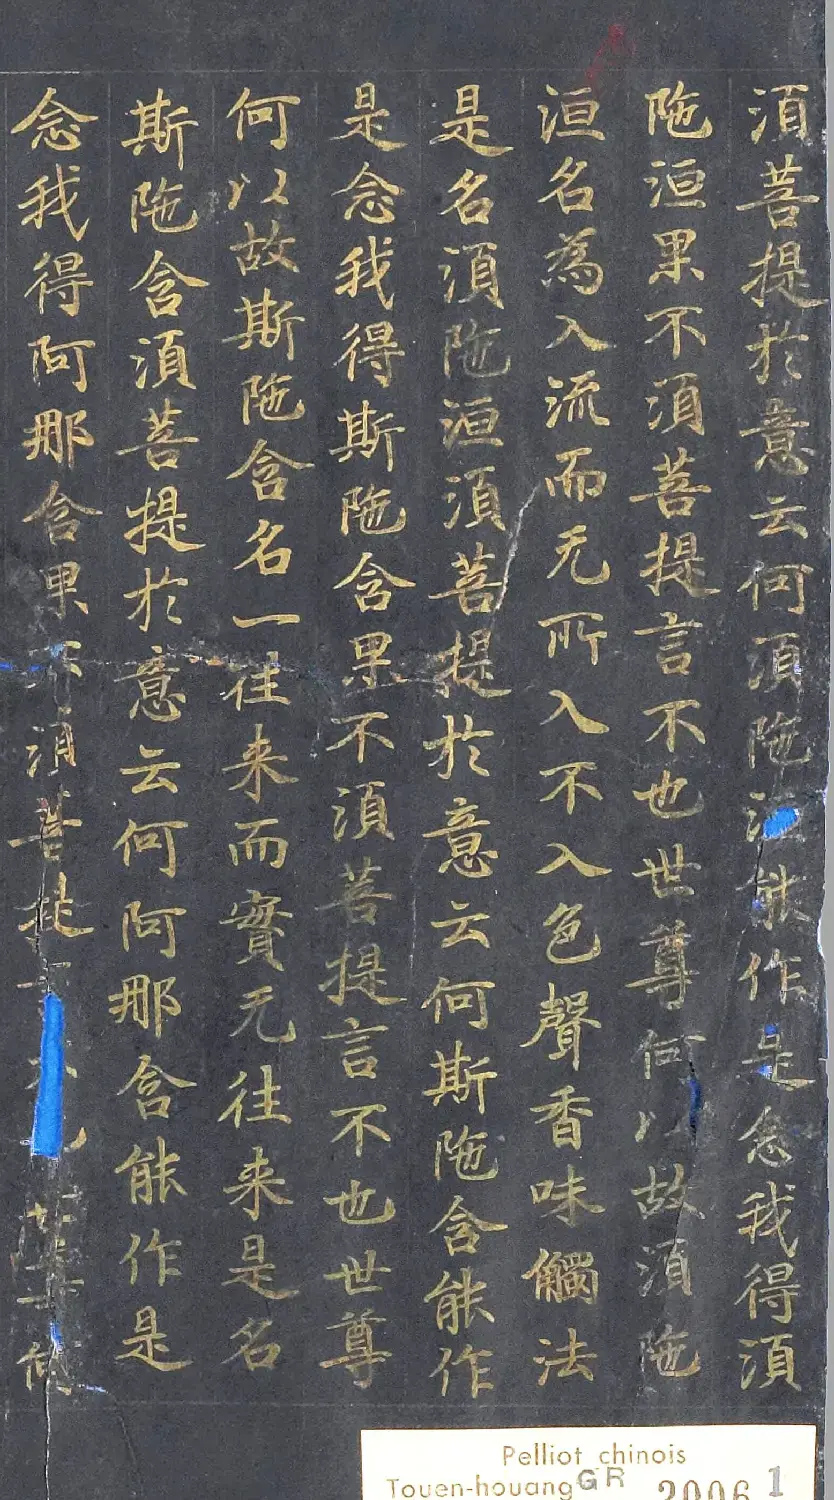 須菩提於意云何須陁洹能作是念我得須
陁洹果不須菩提言不也世尊何以故須陁
洹名為入流而无所入不入色聲香味觸法
是名須陁洹須菩提於意云何斯陁含能作
是念我得斯陁含果不須菩提言不也世尊
何以故斯陁含名一往来而實无往来是名
斯陁含須菩提於意云何阿那含能作是
念我得阿那含果不須菩提言不也世尊何
Pelliot chinois
Touen-houang GR 2006 1